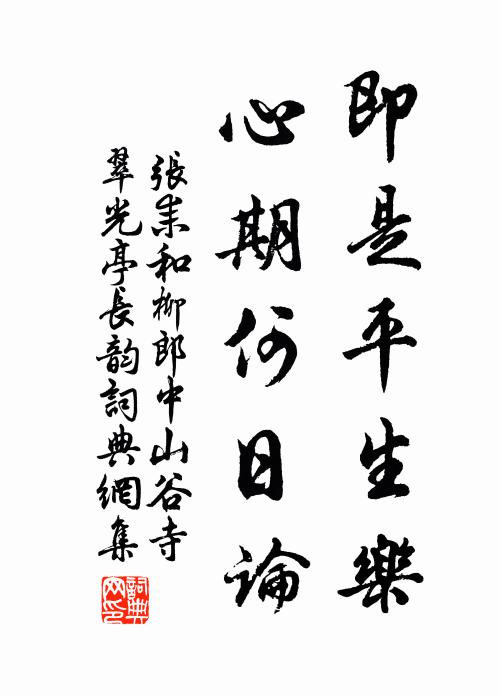 即是平生樂
心期何日論
張耒和柳郎中山谷寺
翠光亭長韵詞典網集
詞典網印